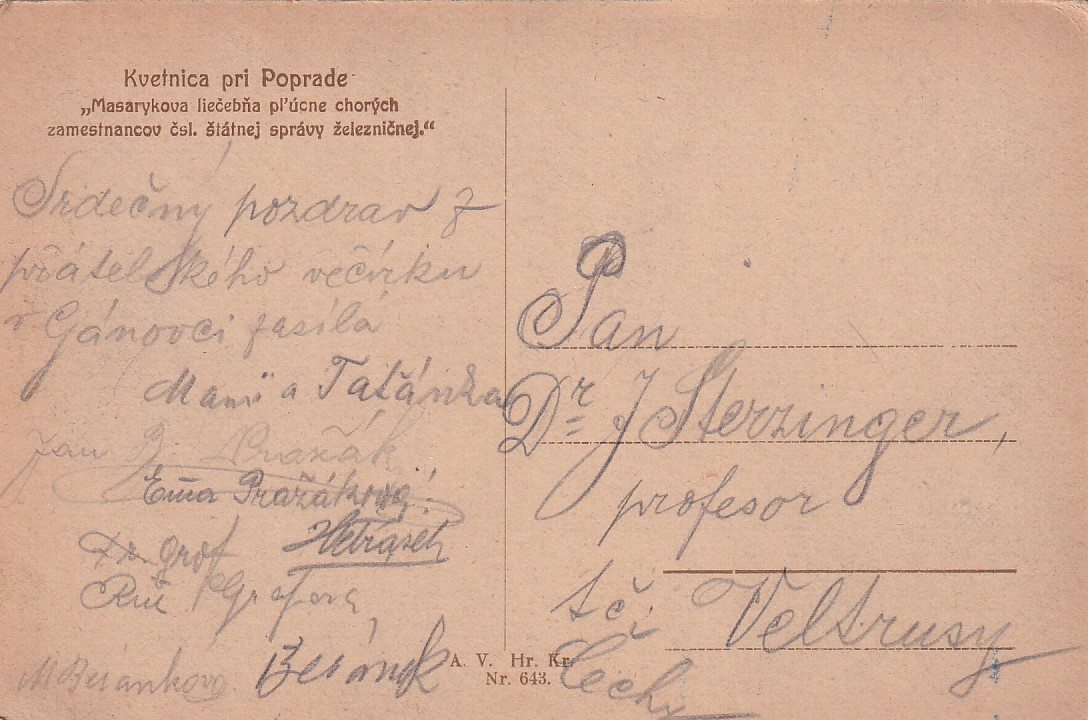 Kvetnica pri Poprade
„Masarykova liečebňa pľúcne chorých
zamestnancov čsl. štátnej správy železničnej."
Srdečný pozdrav z
přátelského večírku
v Gánovci zasílá
Mami a Tatánka
Jan B. Pražák
Ema Pražáková
Grof
Grofová
M Beránková
Beránek
Pan
Dr J Sterzinger,
profesor
tč. Veltrusy
Čechy
A. V. Hr. Kr.
Nr. 643.